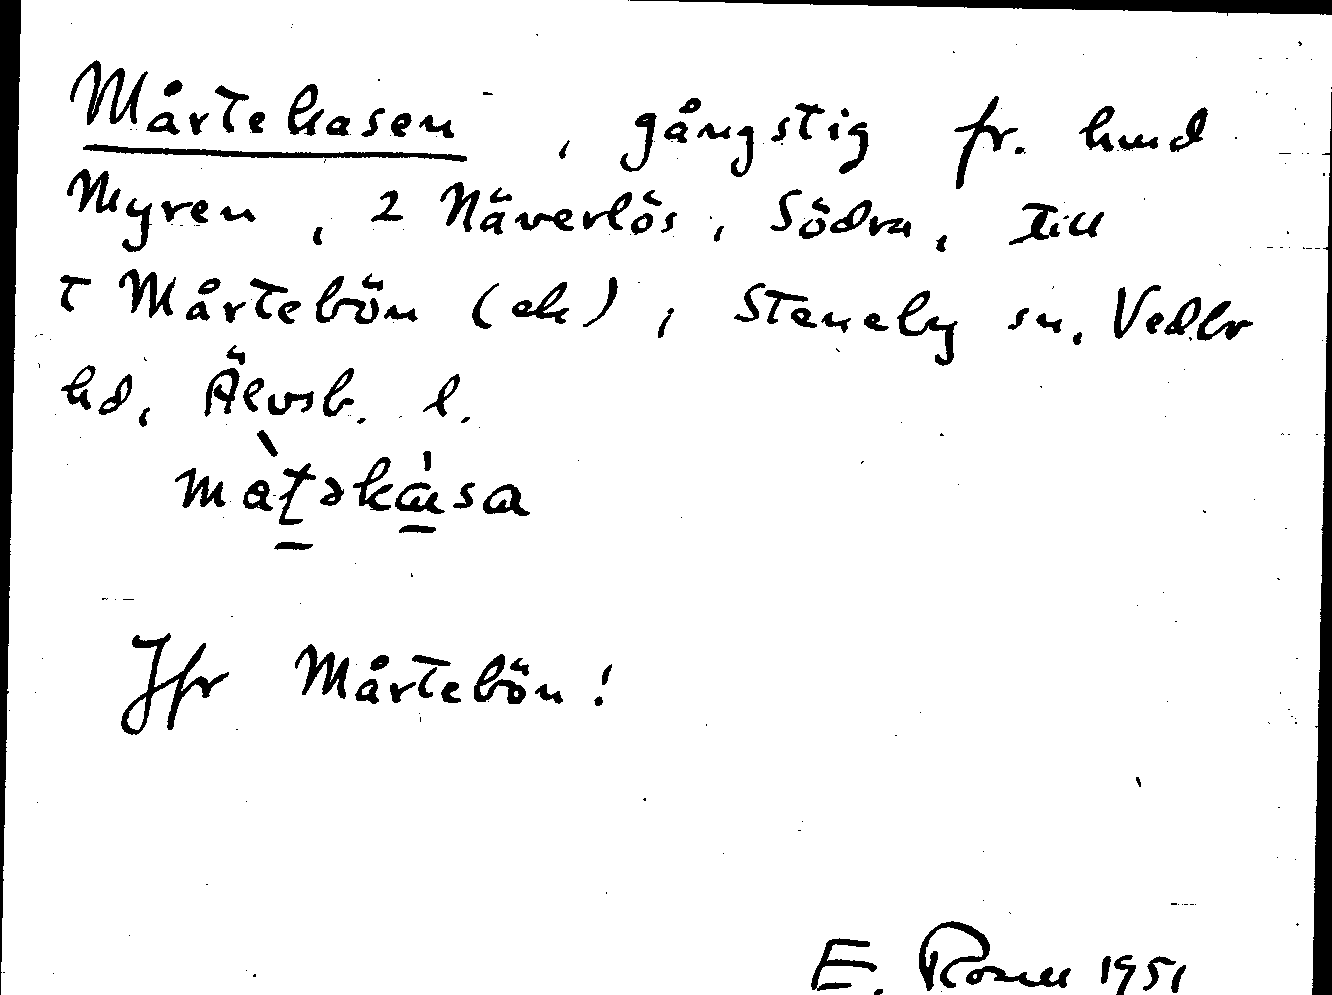 Mårtekasen, gångstig fr. hmd
Myren, 2 Näverlös, Södra, till
t Mårtebön (ek), Steneby sn. Vedbr
hd, Älvsb. l.
Jfr Mårtebön!
E. 1951